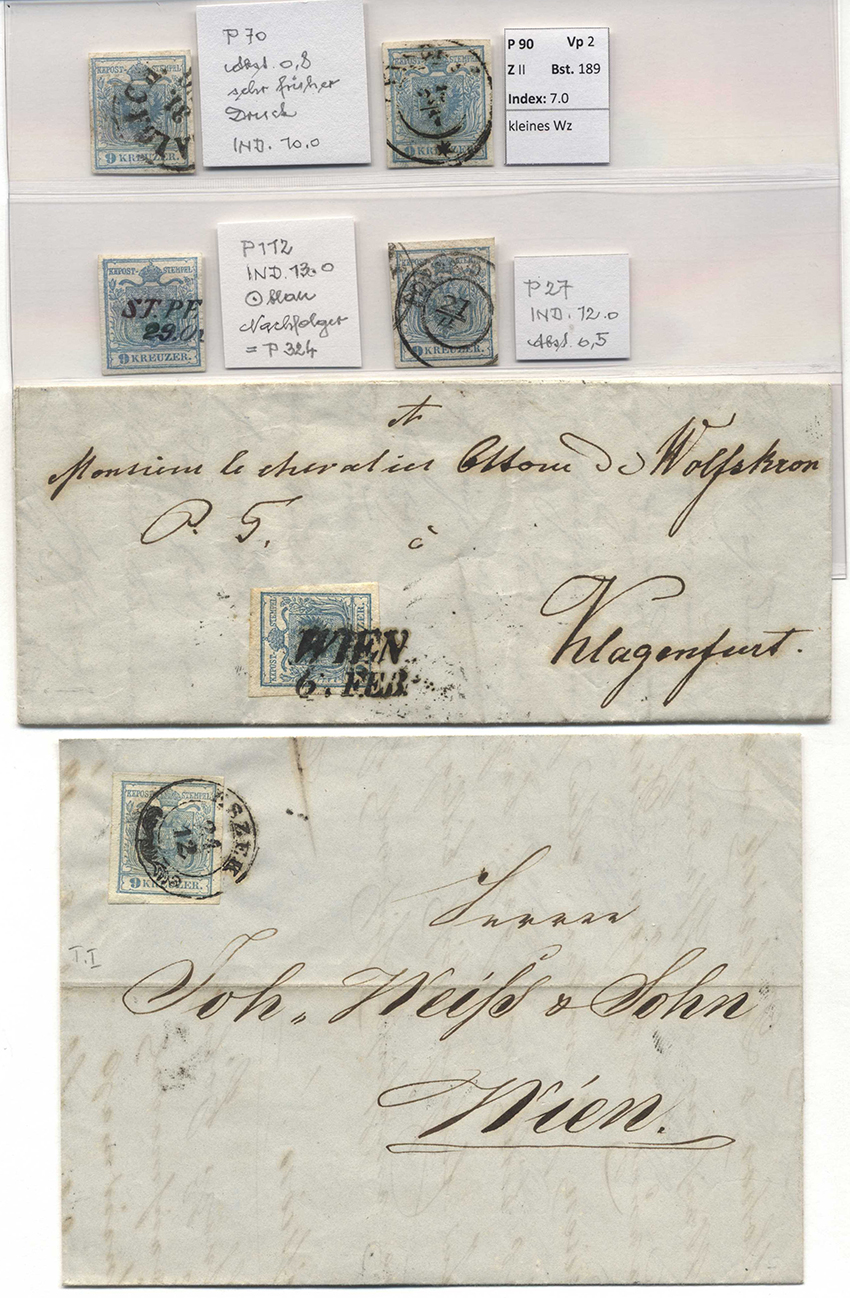 KKPOST-STEMPEL
9 KREUZER.
P 70
Abst. 0,8
sehr früher
Druck
IND. 10.0
9 KREUZER.
P 90 Vp 2
Z II Bst. 189
Index: 7.0
kleines Wz
KKPOST-STEMPEL
ST. PE
29. O
9 KREUZER.
P 112
IND. 13.0
blau
Nachfolger
= P 324
9 KREUZER.
27
P 27
IND. 12.0
Abst. 0,5
A
Monsieur le chevalier Ottone de Wolfskron
P. T. à
Klagenfurt.
KKPOST-STEMPEL
9 KREUZER.
WIEN
6. FEB.
KKPOST-STEMPEL
ESZEK
12
9 KREUZER.
T. I
Herren
Joh. Weiß & Sohn
Wien.